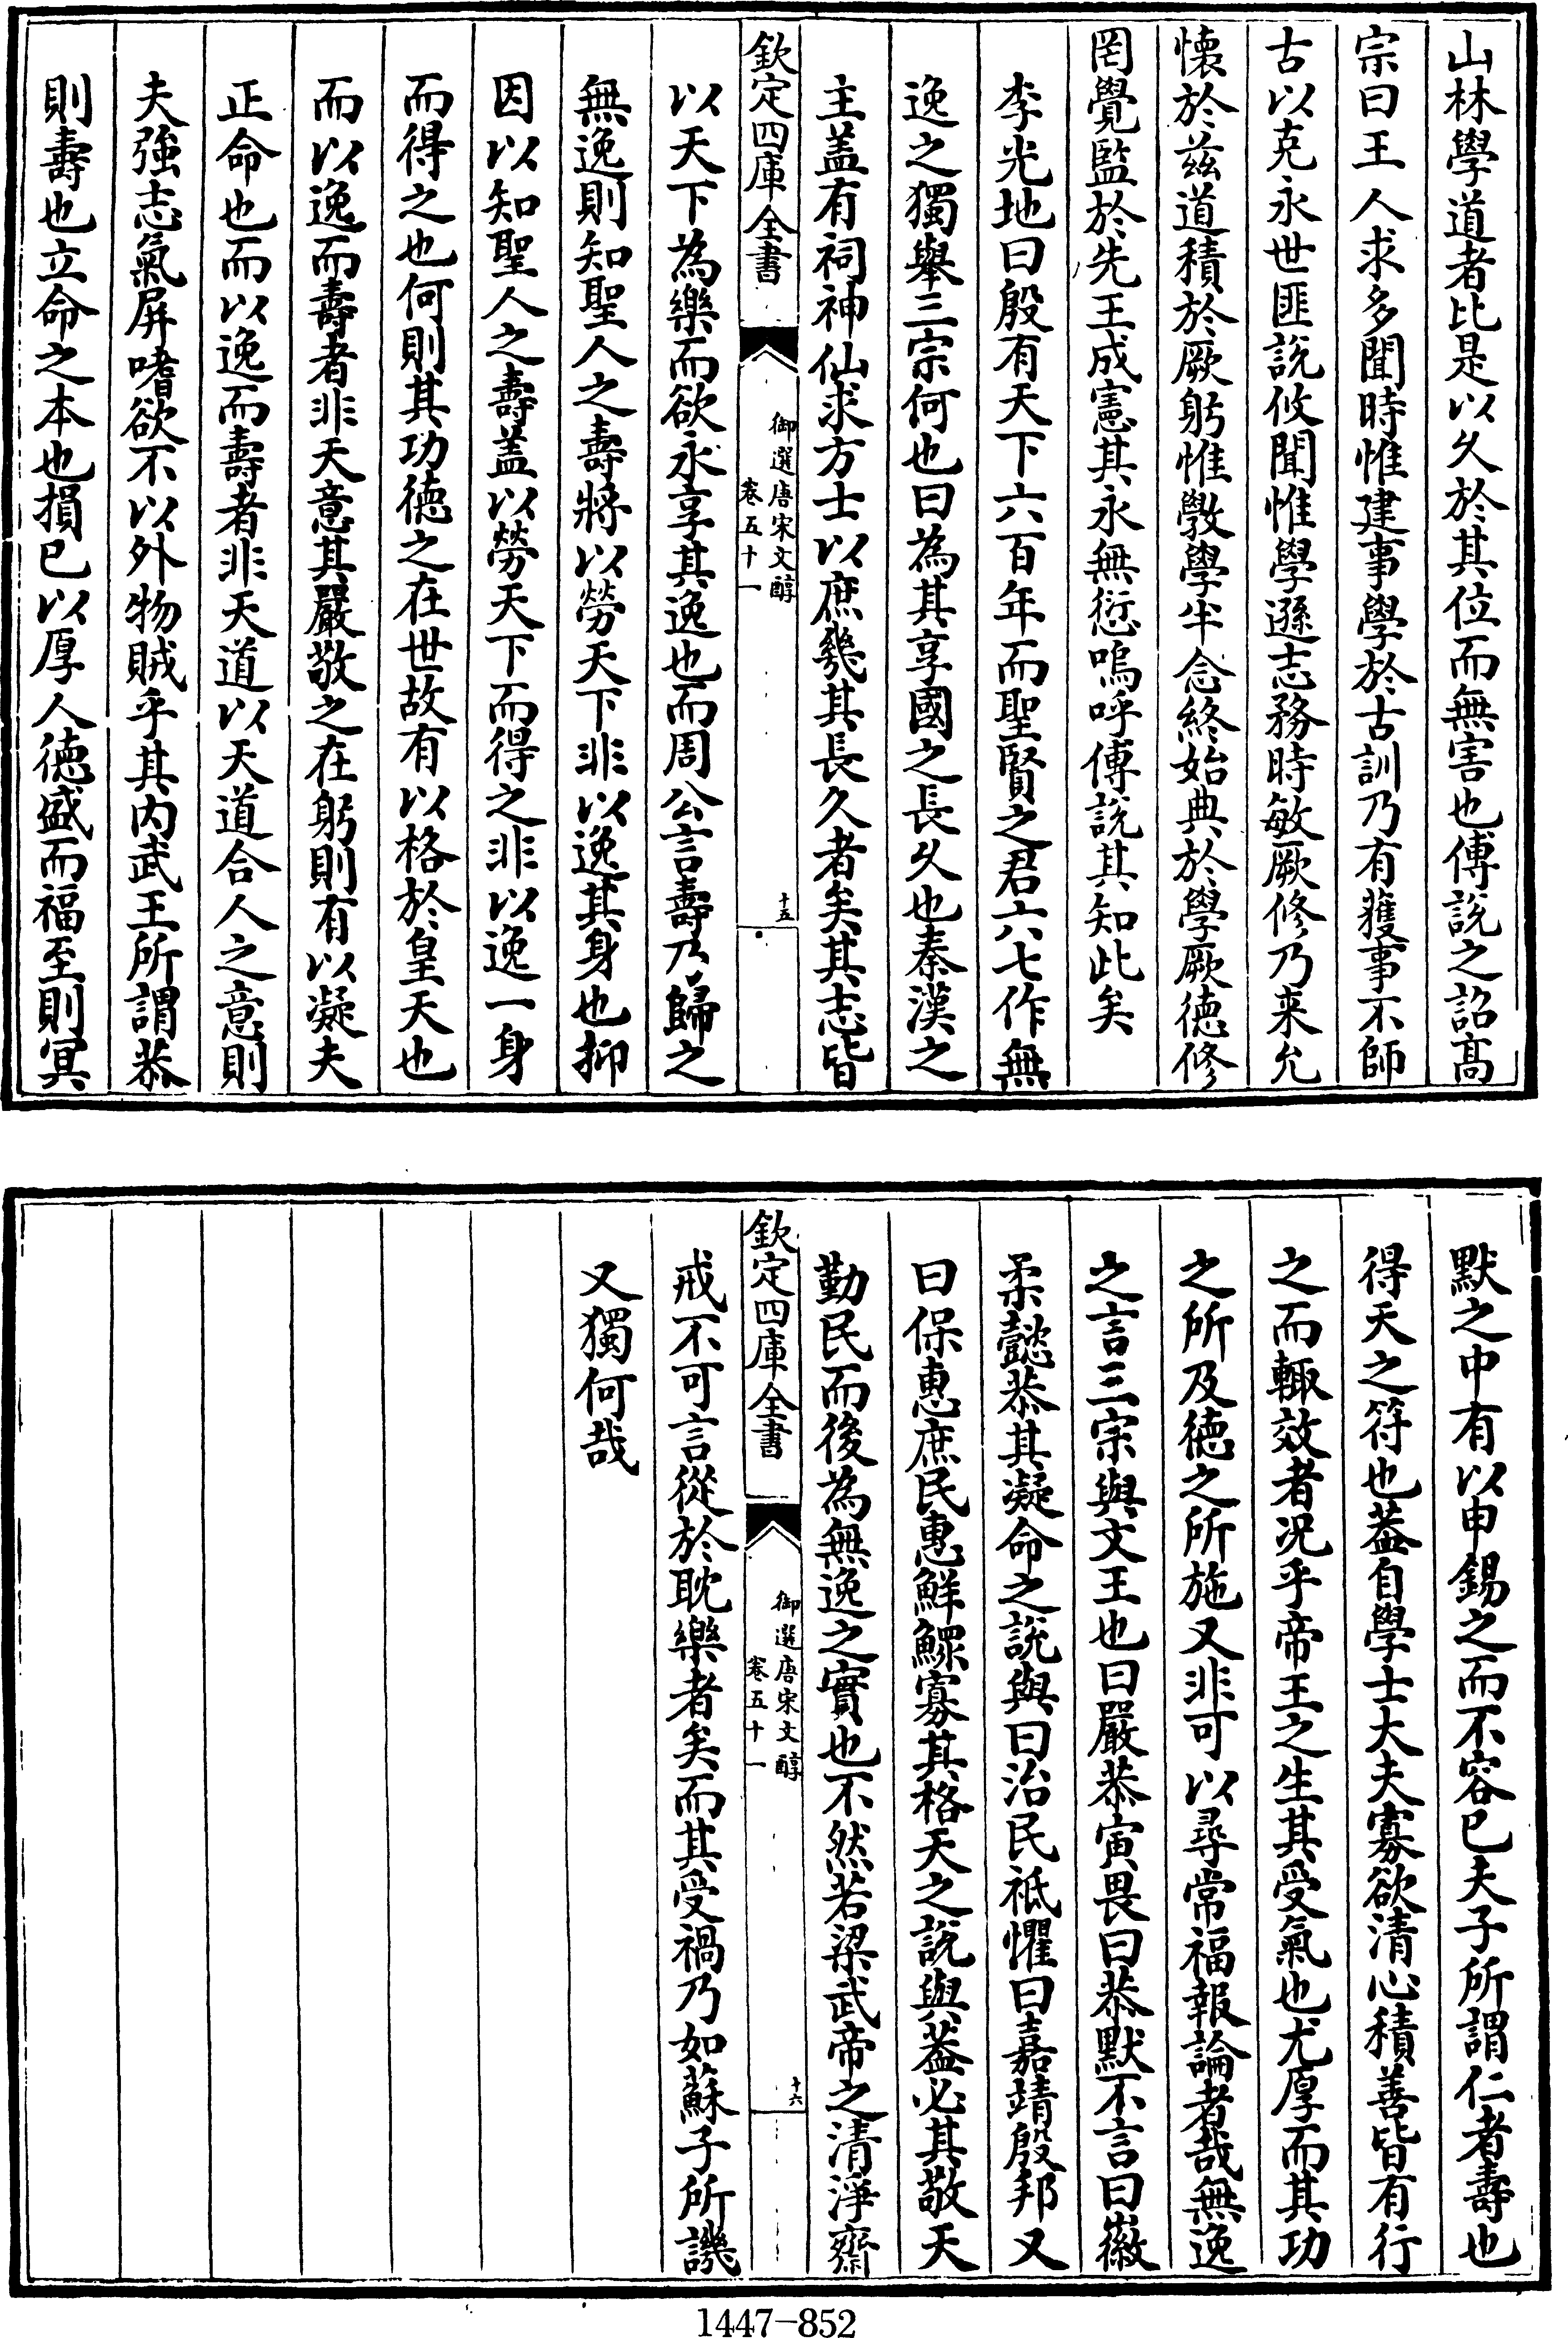 山林學道者比是以久於其位而無害也傅說之詔高
宗曰王人求多聞時惟建事學於古訓乃有獲事不師
古以克永世匪說攸聞惟學遜志務時敏厥修乃来允
懷於兹道積於厥躬惟斆學半念終始典於學厥德修
罔覺監於先王成憲其永無愆嗚呼傅說其知此矣
李光地曰殷有天下六百年而聖賢之君六七作無
逸之獨舉三宗何也曰為其享國之長久也秦漢之
主盖有祠神仙求方士以庶幾其長久者矣其志皆
欽定四庫全書
御選唐宋文醇
卷五十一
十五
以天下為樂而欲永享其逸也而周公言壽乃歸之
無逸則知聖人之壽將以勞天下非以逸其身也抑
因以知聖人之壽盖以勞天下而得之非以逸一身
而得之也何則其功德之在世故有以格於皇天也
而以逸而壽者非天意其嚴敬之在躬則有以凝夫
正命也而以逸而壽者非天道以天道合人之意則
夫強志氣屏嗜欲不以外物賊乎其内武王所謂恭
則壽也立命之本也損已以厚人德盛而福至則冥
默之中有以申錫之而不容已夫子所謂仁者壽也
得天之符也葢自學士大夫寡欲清心積善皆有行
之而輙效者况乎帝王之生其受氣也尤厚而其功
之所及德之所施又非可以尋常福報論者哉無逸
之言三宗與文王也曰嚴恭寅畏曰恭默不言曰徽
柔懿恭其凝命之說與曰治民祗懼曰嘉靖殷邦又
曰保惠庶民惠鮮鰥寡其格天之說與葢必其敬天
勤民而後為無逸之實也不然若梁武帝之清淨齋
欽定四庫全書
御選唐宋文醇
卷五十一
十六
戒不可言從於耽樂者矣而其受禍乃如蘇子所譏
又獨何哉
1447-852